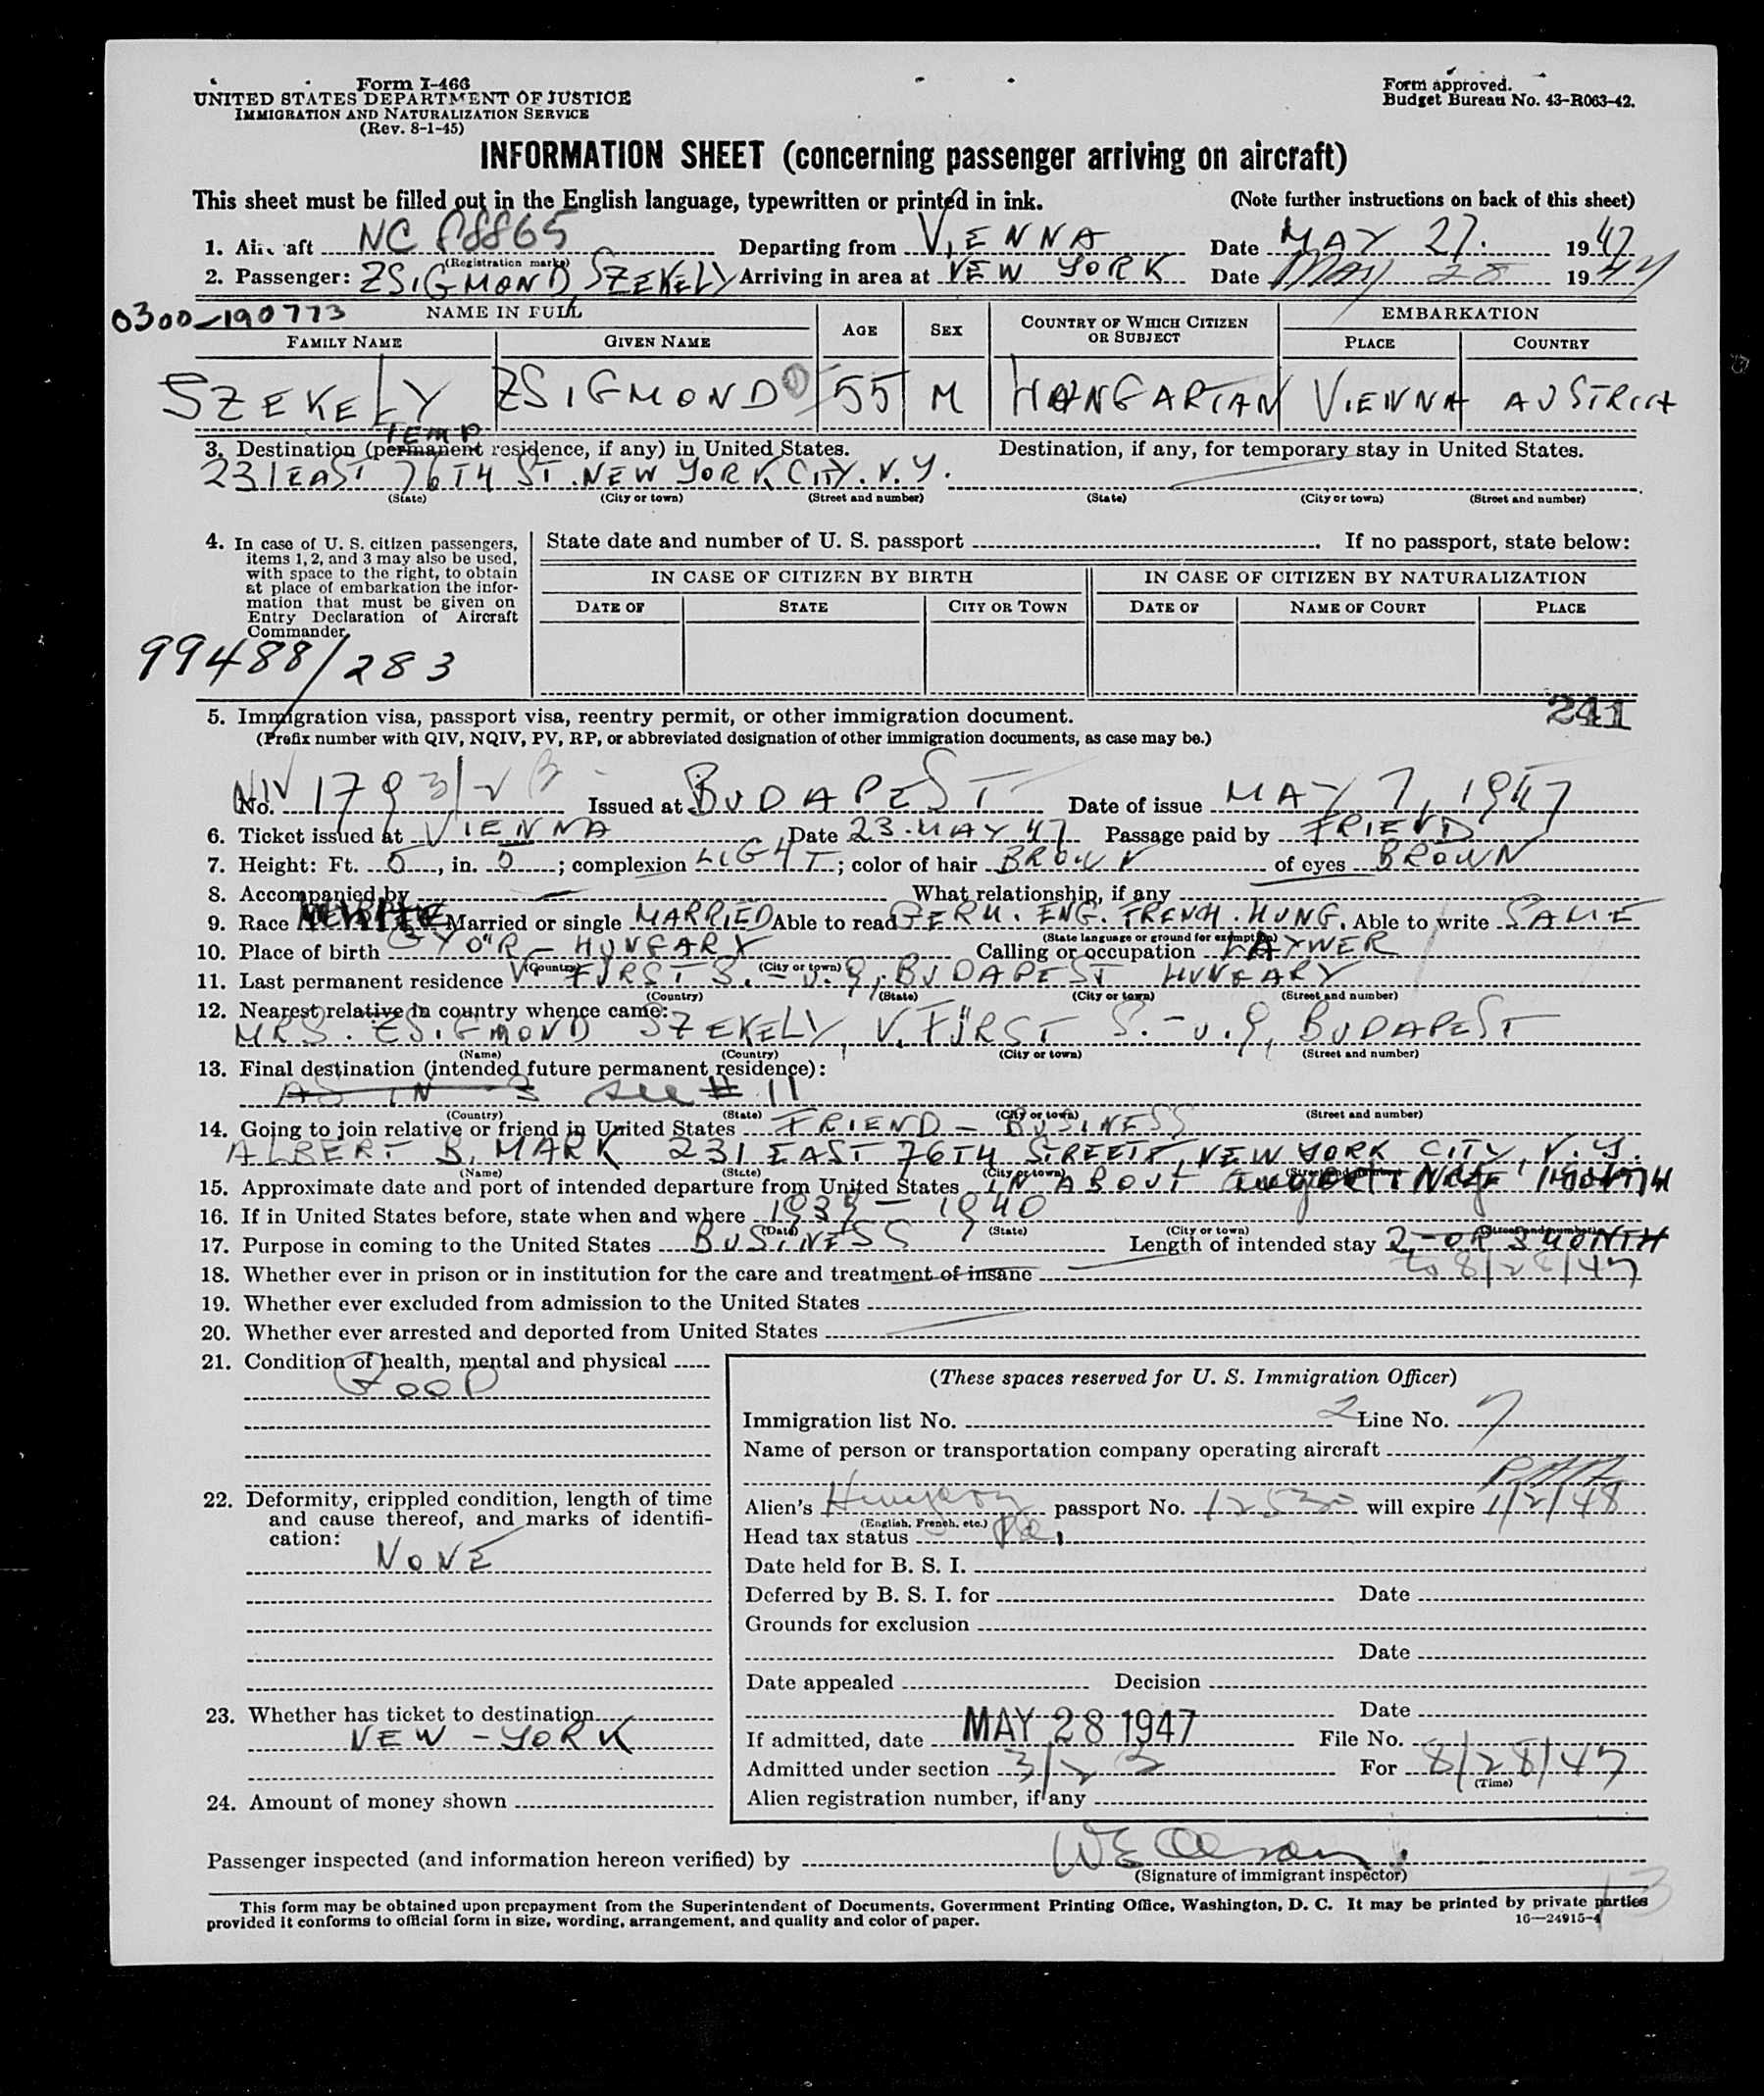 Form I-466
UNITED STATES DEPARTMENT OF JUSTICE
IMMIGRATION AND NATURALIZATION SERVICE
(Rev. 8-1-45)
Form approved.
Budget Bureau No. 43-R063-42.
INFORMATION SHEET (concerning passenger arriving on aircraft)
This sheet must be filled out in the English language, typewritten or printed in ink. (Note further instructions on back of this sheet)
1. Aircraft NC 88865 Departing from VIENNA Date MAY 27. 1947
(Registration marks)
2. Passenger: ZSIGMOND SZEKELY Arriving in area at NEW YORK Date MAY 28 1947
0300-190773
NAME IN FULL AGE SEX COUNTRY OF WHICH CITIZEN OR SUBJECT EMBARKATION
FAMILY NAME GIVEN NAME PLACE COUNTRY
SZEKELY ZSIGMOND 55 M HUNGARIAN VIENNA AUSTRIA
TEMP
3. Destination (permanent residence, if any) in United States. Destination, if any, for temporary stay in United States.
231 EAST 76TH ST. NEW YORK CITY. N.Y.
(State) (City or town) (Street and number) (State) (City or town) (Street and number)
4. In case of U. S. citizen passengers, items 1, 2, and 3 may also be used, with space to the right, to obtain at place of embarkation the information that must be given on Entry Declaration of Aircraft Commander.
State date and number of U. S. passport . If no passport, state below:
IN CASE OF CITIZEN BY BIRTH IN CASE OF CITIZEN BY NATURALIZATION
DATE OF STATE CITY OR TOWN DATE OF NAME OF COURT PLACE
99488/283
241
5. Immigration visa, passport visa, reentry permit, or other immigration document.
(Prefix number with QIV, NQIV, PV, RP, or abbreviated designation of other immigration documents, as case may be.)
NIV
No. 179 3/2 Issued at BUDAPEST Date of issue MAY 7, 1947
6. Ticket issued at VIENNA Date 23. MAY 47 Passage paid by FRIEND
7. Height: Ft. 5, in. 5; complexion LIGHT; color of hair BROWN of eyes BROWN
8. Accompanied by — What relationship, if any
9. Race White Married or single MARRIED Able to read GERM. ENG. FRENCH. HUNG. Able to write SAME
(State language or ground for exemption)
10. Place of birth GYŐR - HUNGARY Calling or occupation LAYWER
(Country) (City or town)
11. Last permanent residence V. FÜRST S. - U. 9, BUDAPEST HUNGARY
(Country) (State) (City or town) (Street and number)
12. Nearest relative in country whence came:
MRS. ZSIGMOND SZEKELY, V. FÜRST S. - U. 9, BUDAPEST
(Name) (Country) (City or town) (Street and number)
13. Final destination (intended future permanent residence):
AS IN 3 see # 11
(Country) (State) (City or town) (Street and number)
14. Going to join relative or friend in United States FRIEND - BUSINESS
ALBERT B. MARK 231 EAST 76TH STREET, NEW YORK CITY, N.Y.
(Name) (State) (City or town) (Street and number)
15. Approximate date and port of intended departure from United States IN ABOUT MONTH
16. If in United States before, state when and where 1939 - 1940
(Date) (State) (City or town) (Street and number)
17. Purpose in coming to the United States BUSINESS Length of intended stay 2 - OR 3 MONTH
to 8/28/47
18. Whether ever in prison or in institution for the care and treatment of insane
19. Whether ever excluded from admission to the United States
20. Whether ever arrested and deported from United States
21. Condition of health, mental and physical
GOOD
22. Deformity, crippled condition, length of time and cause thereof, and marks of identification:
NONE
23. Whether has ticket to destination
NEW - YORK
24. Amount of money shown
(These spaces reserved for U. S. Immigration Officer)
Immigration list No. 2 Line No. 7
Name of person or transportation company operating aircraft
PAA
Alien's Hungary passport No. 12530 will expire 1/2/48
(English, French, etc.)
Head tax status
Date held for B. S. I.
Deferred by B. S. I. for Date
Grounds for exclusion
Date
Date appealed Decision
Date
If admitted, date MAY 28 1947 File No.
Admitted under section 3/2 B For 8/28/47
(Time)
Alien registration number, if any
Passenger inspected (and information hereon verified) by W E Olson
(Signature of immigrant inspector)
This form may be obtained upon prepayment from the Superintendent of Documents, Government Printing Office, Washington, D. C. It may be printed by private parties
provided it conforms to official form in size, wording, arrangement, and quality and color of paper. 16—24915-4